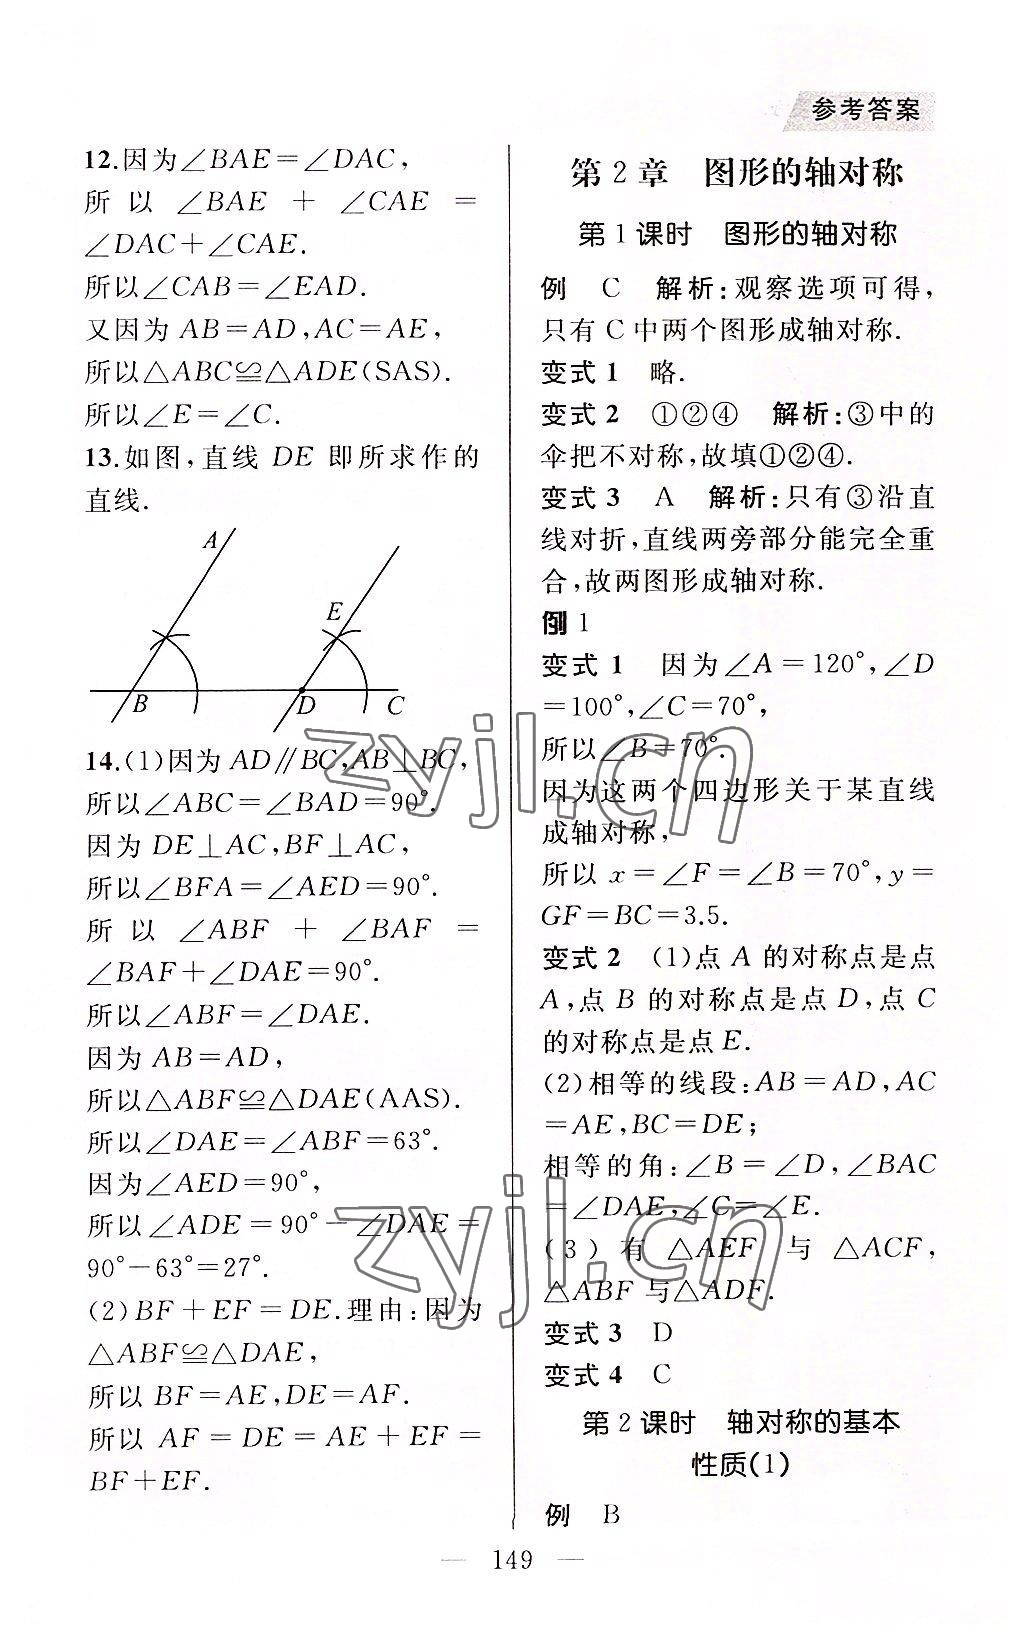 参考答案
12.因为∠BAE=∠DAC,
所以∠BAE+∠CAE=
∠DAC+∠CAE.
所以∠CAB=∠EAD.
又因为AB=AD,AC=AE,
所以△ABC≌△ADE(SAS).
所以∠E=∠C.
13.如图,直线DE即所求作的
直线.
A
E
B
D
C
14.(1)因为AD∥BC,AB⊥BC,
所以∠ABC=∠BAD=90°.
因为DE⊥AC,BF⊥AC,
所以∠BFA=∠AED=90°.
所以∠ABF+∠BAF=
∠BAF+∠DAE=90°.
所以∠ABF=∠DAE.
因为AB=AD,
所以△ABF≌△DAE(AAS).
所以∠DAE=∠ABF=63°.
因为∠AED=90°,
所以∠ADE=90°-∠DAE=
90°-63°=27°.
(2)BF+EF=DE.理由:因为
△ABF≌△DAE,
所以BF=AE,DE=AF.
所以AF=DE=AE+EF=
BF+EF.
第2章 图形的轴对称
第1课时 图形的轴对称
例 C 解析:观察选项可得,
只有C中两个图形成轴对称.
变式1 略.
变式2 ①②④ 解析:③中的
伞把不对称,故填①②④.
变式3 A 解析:只有③沿直
线对折,直线两旁部分能完全重
合,故两图形成轴对称.
例1
变式1 因为∠A=120°,∠D
=100°,∠C=70°,
所以∠B=70°.
因为这两个四边形关于某直线
成轴对称,
所以x=∠F=∠B=70°,y=
GF=BC=3.5.
变式2 (1)点A的对称点是点
A,点B的对称点是点D,点C
的对称点是点E.
(2)相等的线段:AB=AD,AC
=AE,BC=DE;
相等的角:∠B=∠D,∠BAC
=∠DAE,∠C=∠E.
(3)有△AEF与△ACF,
△ABF与△ADF.
变式3 D
变式4 C
第2课时 轴对称的基本
性质(1)
例 B
zyjl.cn
zyjl.cn
— 149 —